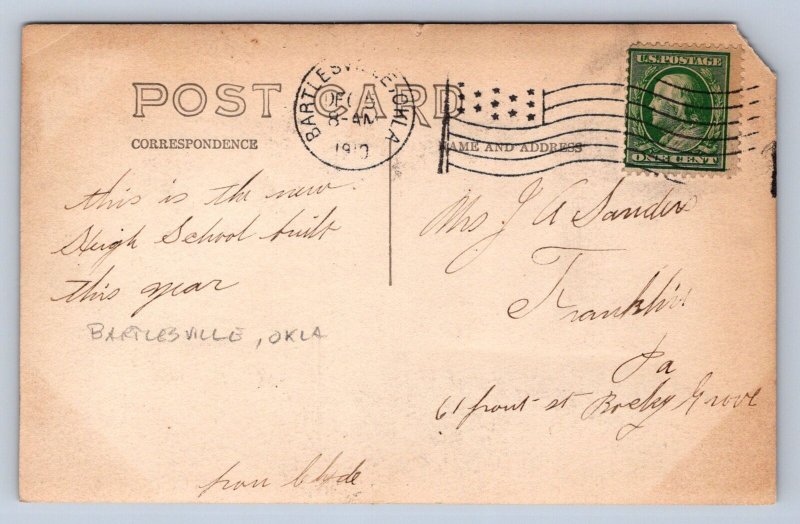 POST CARD
BARTLESVILLE, OKLA
DEC
8 AM
1910
U.S. POSTAGE
ONE CENT
CORRESPONDENCE
NAME AND ADDRESS
this is the new
High School built
this year
BARTLESVILLE, OKLA
from Clyde
Mrs J A Sanders
Franklin
Pa
61 front st Rocky Grove